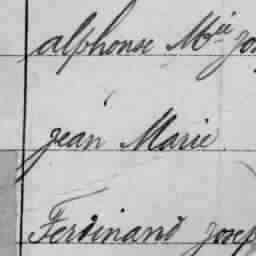 alphonse Mie
jean Marie
Ferdinand